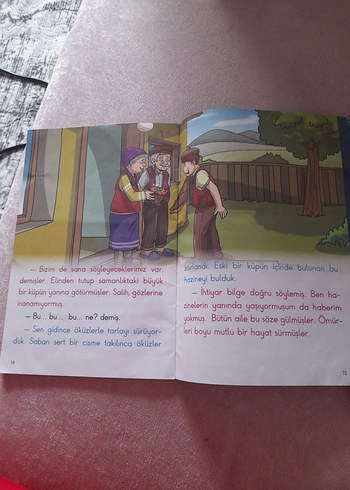 — Bizim de sana söyleyeceklerimiz var,
demişler. Elinden tutup samanlıktaki büyük
bir küpün yanına götürmüşler. Salih, gözlerine
inanamıyormuş.
— Bu... bu... bu... ne? demiş.
— Sen gidince öküzlerle tarlayı sürüyor-
duk. Saban sert bir cisme takılınca öküzler
14
zorlandı. Eski bir küpün içinde bulunan bu
hazineyi bulduk.
— İhtiyar bilge doğru söylemiş. Ben ha-
zinelerin yanında yaşıyormuşum da haberim
yokmuş. Bütün aile bu söze gülmüşler. Ömür-
leri boyu mutlu bir hayat sürmüşler.
15